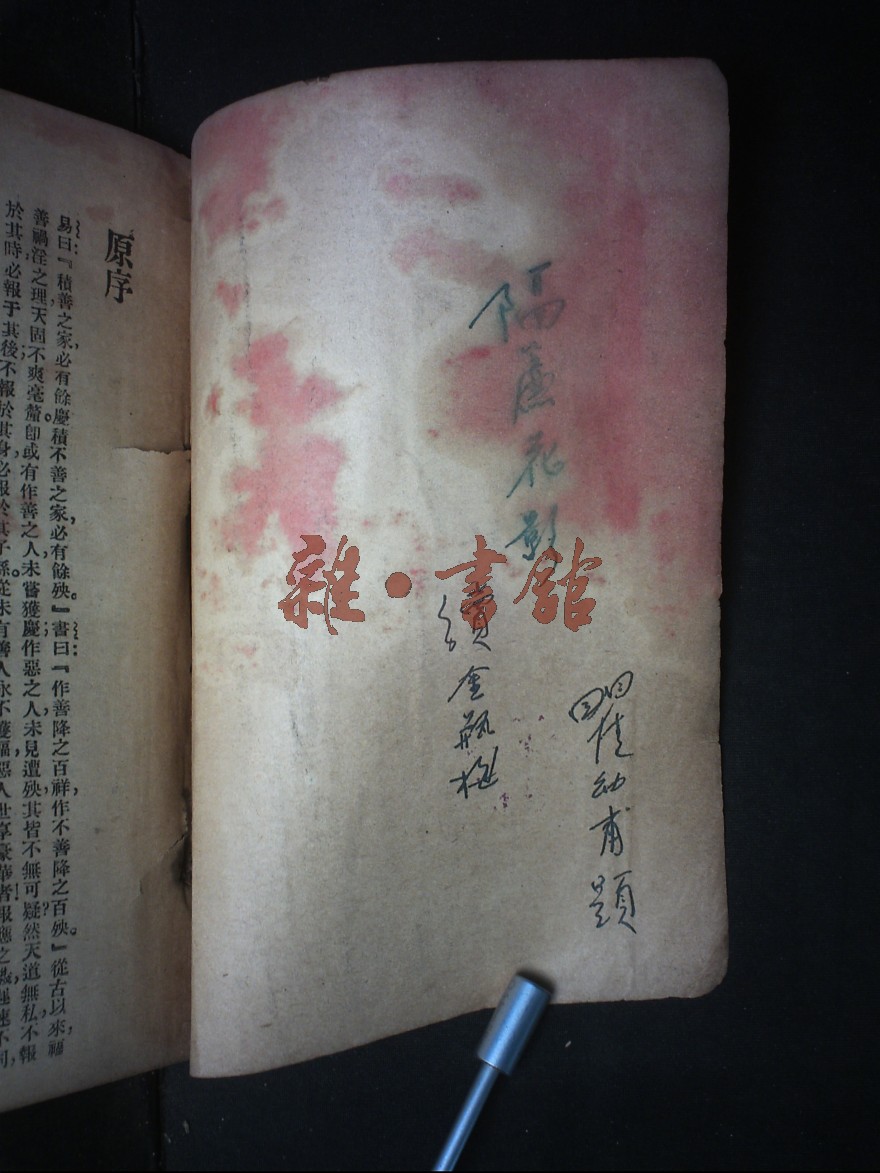 隔簾花影
續金瓶梅
幼甫題
雜·書館
原序
易曰『積善之家，必有餘慶，積不善之家，必有餘殃。』書曰『作善降之百祥，作不善降之百殃。』從古以來，福
善禍淫之理，天固不爽毫釐。卽或有作善之人，未嘗獲慶；作惡之人，未見遭殃；其皆不無可疑？然天道無私，不報
於其時，必報于其後；不報於其身，必報於其子孫。從未有善人永不獲福，惡人世享豪華者！報應之